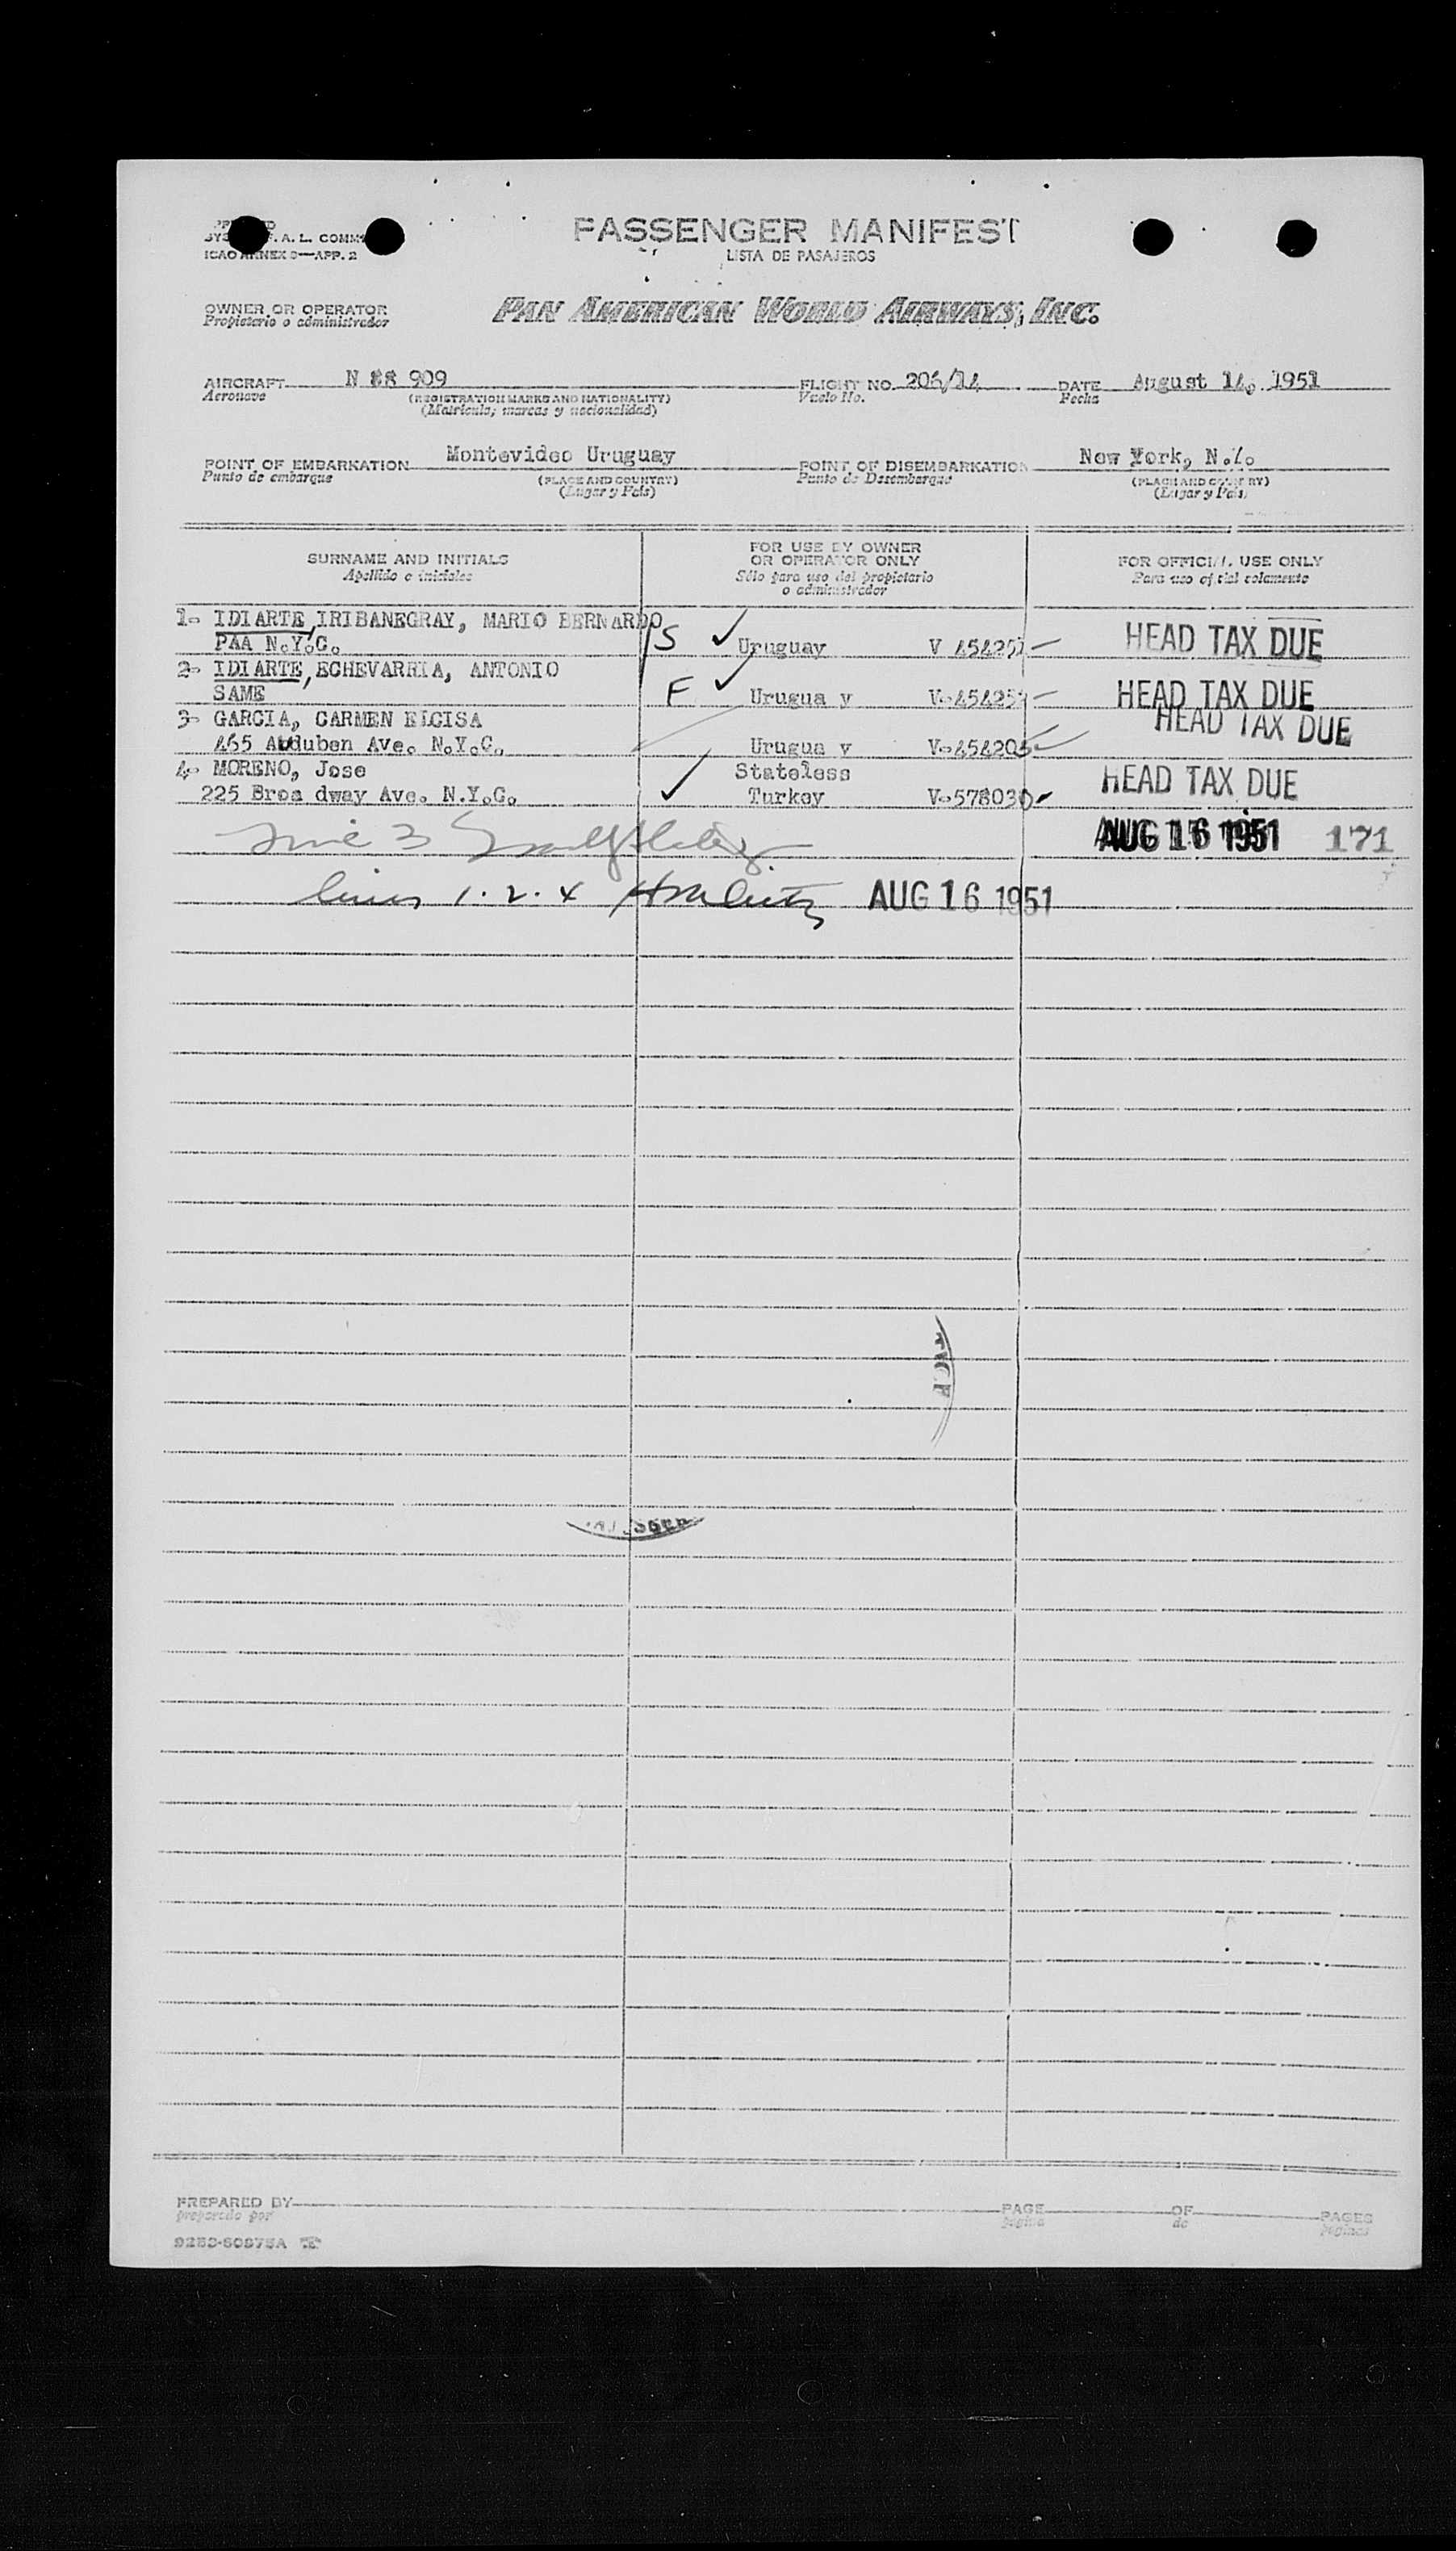 PASSENGER MANIFEST
LISTA DE PASAJEROS
F. A. L. COMM
ICAO ANNEX 9—APP. 2
OWNER OR OPERATOR
Propietario o administrador
PAN AMERICAN WORLD AIRWAYS, INC.
AIRCRAFT N 88 909 FLIGHT NO. 206/14 DATE August 14, 1951
Aeronave (REGISTRATION MARKS AND NATIONALITY) Vuelo No. Fecha
(Matrícula, marcas y nacionalidad)
POINT OF EMBARKATION Montevideo Uruguay POINT OF DISEMBARKATION New York, N.Y.
Punto de embarque (PLACE AND COUNTRY) Punto de Desembarque (PLACE AND COUNTRY)
(Lugar y País) (Lugar y País)
SURNAME AND INITIALS FOR USE BY OWNER OR OPERATOR ONLY FOR OFFICIAL USE ONLY
Apellido e iniciales Sólo para uso del propietario o administrador Para uso oficial solamente
1- IDIARTE, IRIBANEGRAY, MARIO BERNARDO
PAA N.Y.C. S ✓ Uruguay V 454251 HEAD TAX DUE
2- IDIARTE, ECHEVARRIA, ANTONIO
SAME F ✓ Urugua y V-45425 HEAD TAX DUE
3- GARCIA, CARMEN ELOISA HEAD TAX DUE
465 Auduben Ave. N.Y.C. Urugua y V-454205
4- MORENO, Jose Stateless HEAD TAX DUE
225 Broa dway Ave. N.Y.C. ✓ Turkey V-578030
line 3 AUG 16 1951 171
lines 1.2.4 AUG 16 1951
PREPARED BY PAGE OF PAGES
preparado por página de páginas